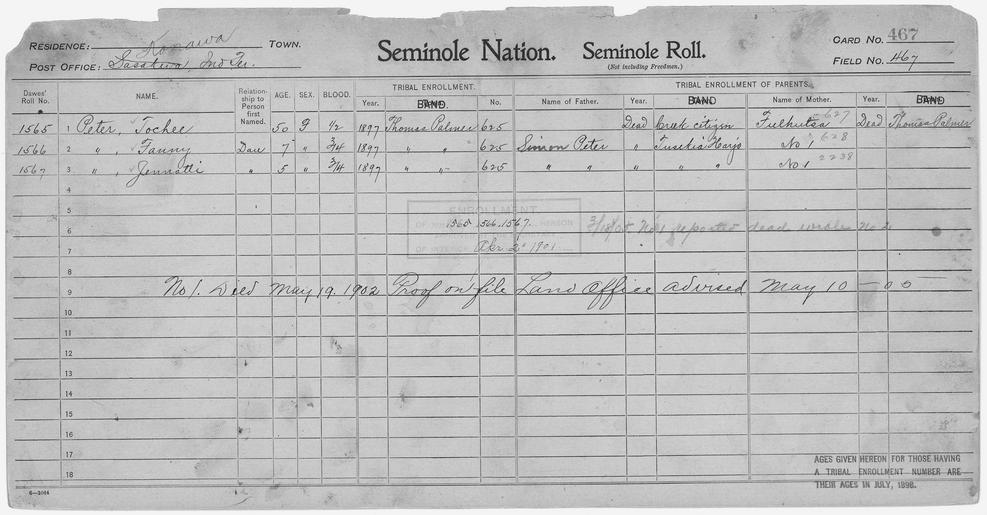 RESIDENCE: Konawa TOWN.
POST OFFICE: Sasakwa, Ind Ter.
Seminole Nation. Seminole Roll.
(Not including Freedmen.)
CARD NO. 467
FIELD NO. 467
Dawes' Roll No. NAME. Relationship to Person first Named. AGE. SEX. BLOOD. TRIBAL ENROLLMENT. TRIBAL ENROLLMENT OF PARENTS.
Year. BAND. No. Name of Father. Year. BAND Name of Mother. Year. BAND
1565 1 Peter, Tochee 50 F 1/2 1897 Thomas Palmer 625 Dead Creek citizen Fulhutsa 627 Dead Thomas Palmer
1566 2 " , Fanny Dau 7 " 3/4 1897 " " 625 Simon Peter " Tusekia Harjo No 1 628
1567 3 " , Jennatti " 5 " 3/4 1897 " " 625 " " " " " No 1 2238
4
5
ENROLLMENT
6 1565 1566.1567. HEREON 3/18/05 No 1 reported dead wrote No 2
7 Apr 2 1901
8
9 No 1. Died May 19. 1902 Proof on file Land Office advised May 10 — 00
10
11
12
13
14
15
16
17
18
AGES GIVEN HEREON FOR THOSE HAVING
A TRIBAL ENROLLMENT NUMBER ARE
THEIR AGES IN JULY, 1898.